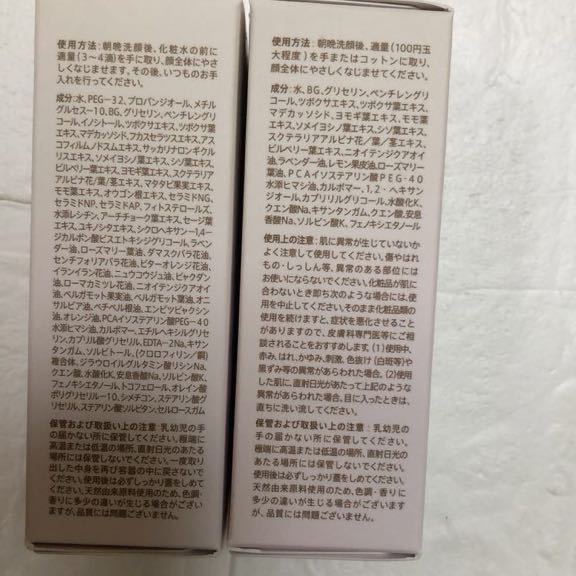 使用方法：朝晩洗顔後、化粧水の前に
適量（3～4滴）を手に取り、顔全体にやさ
しくなじませます。その後、いつものお手
入れを行ってください。
成分：水、PEG-32、プロパンジオール、メチル
グルセス-10、BG、グリセリン、ペンチレングリ
コール、イノシトール、ツボクサエキス、ツボクサ葉
エキス、マデカッソシド、フカスセラツスエキス、アス
コフィルムノドスムエキス、サッカリナロンギクル
リスエキス、ソメイヨシノ葉エキス、シソ葉エキス、
ビルベリー葉エキス、ヨモギ葉エキス、スクテラリア
アルピナ花/葉/茎エキス、マタタビ果実エキス、
モモ葉エキス、オウゴン根エキス、セラミドNG、
セラミドNP、セラミドAP、フィトステロールズ、
水添レシチン、アーチチョーク葉エキス、セージ葉
エキス、ユキノシタエキス、シクロヘキサン-1,4-
ジカルボン酸ビスエトキシジグリコール、ラベン
ダー油、ローズマリー葉油、ダマスクバラ花油、
センチフォリアバラ花油、ビターオレンジ花油、
イランイラン花油、ニュウコウジュ油、ビャクダン
油、ローマカミツレ花油、ニオイテンジクアオイ
油、ベルガモット果実油、ベルガモット葉油、オニ
サルビア油、ベチベル根油、エンピツビャクシン
油、オレンジ油、PCAイソステアリン酸PEG-40
水添ヒマシ油、カルボマー、エチルヘキシルグリセ
リン、カプリル酸グリセリル、EDTA-2Na、キサン
タンガム、ソルビトール、（クロロフィリン/銅）
複合体、ジラウロイルグルタミン酸リシンNa、
クエン酸、水酸化K、安息香酸Na、ソルビン酸K、
フェノキシエタノール、トコフェロール、オレイン酸
ポリグリセリル-10、シメチコン、ステアリン酸グ
リセリル、ステアリン酸ソルビタン、セルロースガム
保管および取扱い上の注意：乳幼児の手
の届かない所に保管してください。極端に
高温または低温の場所、直射日光のあた
る場所には保管しないでください。一度取り
出した中身を再び容器の中に戻さないで
ください。使用後は必ずしっかり蓋をしめて
ください。天然由来原料使用のため、色調・
香りに多少の違いが生じる場合がござい
ますが、品質には問題ございません。
使用方法：朝晩洗顔後、適量（100円玉
大程度）を手またはコットンに取り、
顔全体にやさしくなじませてください。
成分：水、BG、グリセリン、ペンチレングリ
コール、ツボクサエキス、ツボクサ葉エキス、
マデカッソシド、ヨモギ葉エキス、モモ葉
エキス、ソメイヨシノ葉エキス、シソ葉エキス、
スクテラリアアルピナ花/葉/茎エキス、
ビルベリー葉エキス、ニオイテンジクアオイ
油、ラベンダー油、レモン果皮油、ローズマリー
葉油、PCAイソステアリン酸PEG-40
水添ヒマシ油、カルボマー、1,2-ヘキサン
ジオール、カプリリルグリコール、水酸化K、
クエン酸Na、キサンタンガム、クエン酸、安息
香酸Na、ソルビン酸K、フェノキシエタノール
使用上の注意：肌に異常が生じていないか
よく注意して使用してください。傷やはれ
もの・しっしん等、異常のある部位には
お使いにならないでください。化粧品が肌に
合わないとき即ち次のような場合には、使
用を中止してください。そのまま化粧品類の
使用を続けますと、症状を悪化させること
がありますので、皮膚科専門医等にご相
談されることをおすすめします。（1）使用中、
赤み、はれ、かゆみ、刺激、色抜け（白斑等）や
黒ずみ等の異常があらわれた場合。（2）使用
した肌に、直射日光があたって上記のような
異常があらわれた場合。目に入ったときは、
直ちに洗い流してください。
保管および取扱い上の注意：乳幼児の
手の届かない所に保管してください。極端
に高温または低温の場所、直射日光のあ
たる場所には保管しないでください。使用
後は必ずしっかり蓋をしめてください。
天然由来原料使用のため、色調・香りに
多少の違いが生じる場合がございます
が、品質には問題ございません。